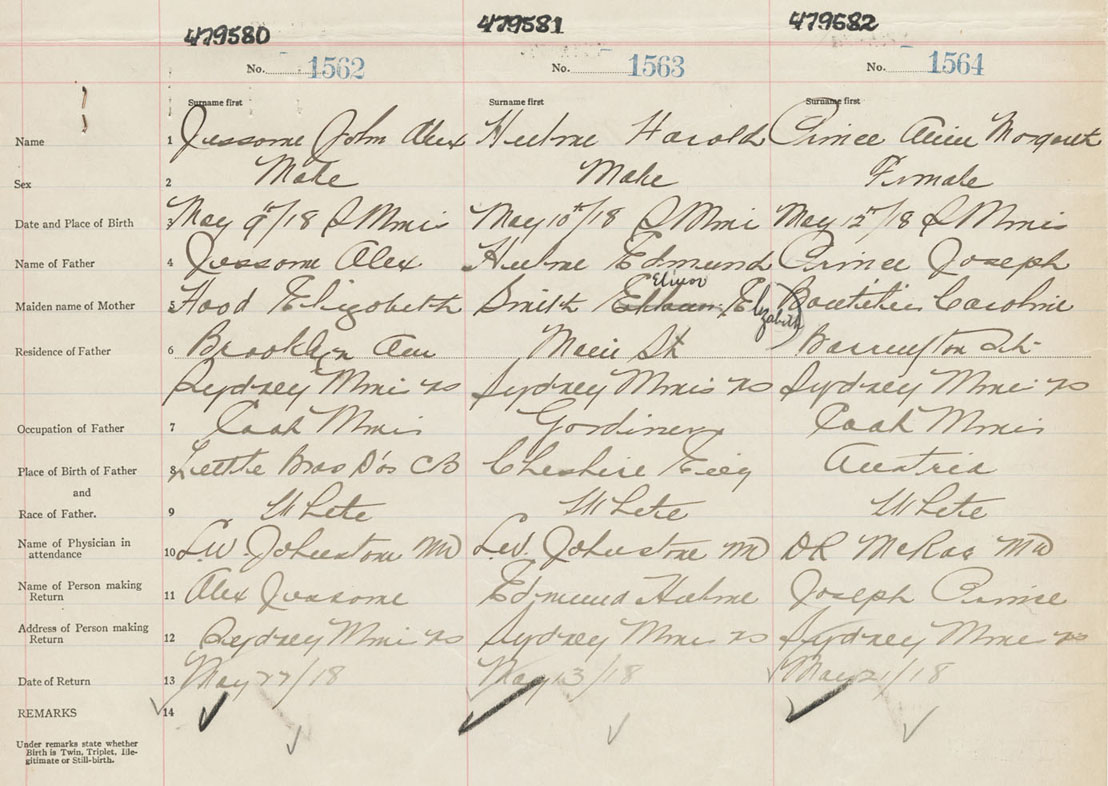 479580 479581 479582
No. 1562 No. 1563 No. 1564
Surname first Surname first Surname first
Name 1 Jessome John Alex Hulme Harold Prince Margaret
Sex 2 Male Male Female
Date and Place of Birth 3 May 9th/18 S Mines May 10th/18 S Mines May 12th/18 S Mines
Name of Father 4 Jessome Alex Hulme Edmund Prince Joseph
Maiden name of Mother 5 Hood Elizabeth Smith Elinor Elizabeth Boutilier Caroline
Residence of Father 6 Brooklyn Ave Main St Barrington St
Sydney Mines NS Sydney Mines NS Sydney Mines NS
Occupation of Father 7 Coal Mines Gordiner Coal Mines
Place of Birth of Father 8 Little Bras D'or CB Cheshire Eng Austria
and
Race of Father. 9 White White White
Name of Physician in
attendance 10 L.W. Johnstone MD L.W. Johnstone MD DR McRae MD
Name of Person making
Return 11 Alex Jessome Edmund Hulme Joseph Prince
Address of Person making
Return 12 Sydney Mines NS Sydney Mines NS Sydney Mines NS
Date of Return 13 May 27/18 May 13/18 May 21/18
REMARKS 14
Under remarks state whether
Birth is Twin, Triplet, Ille-
gitimate or Still-birth.